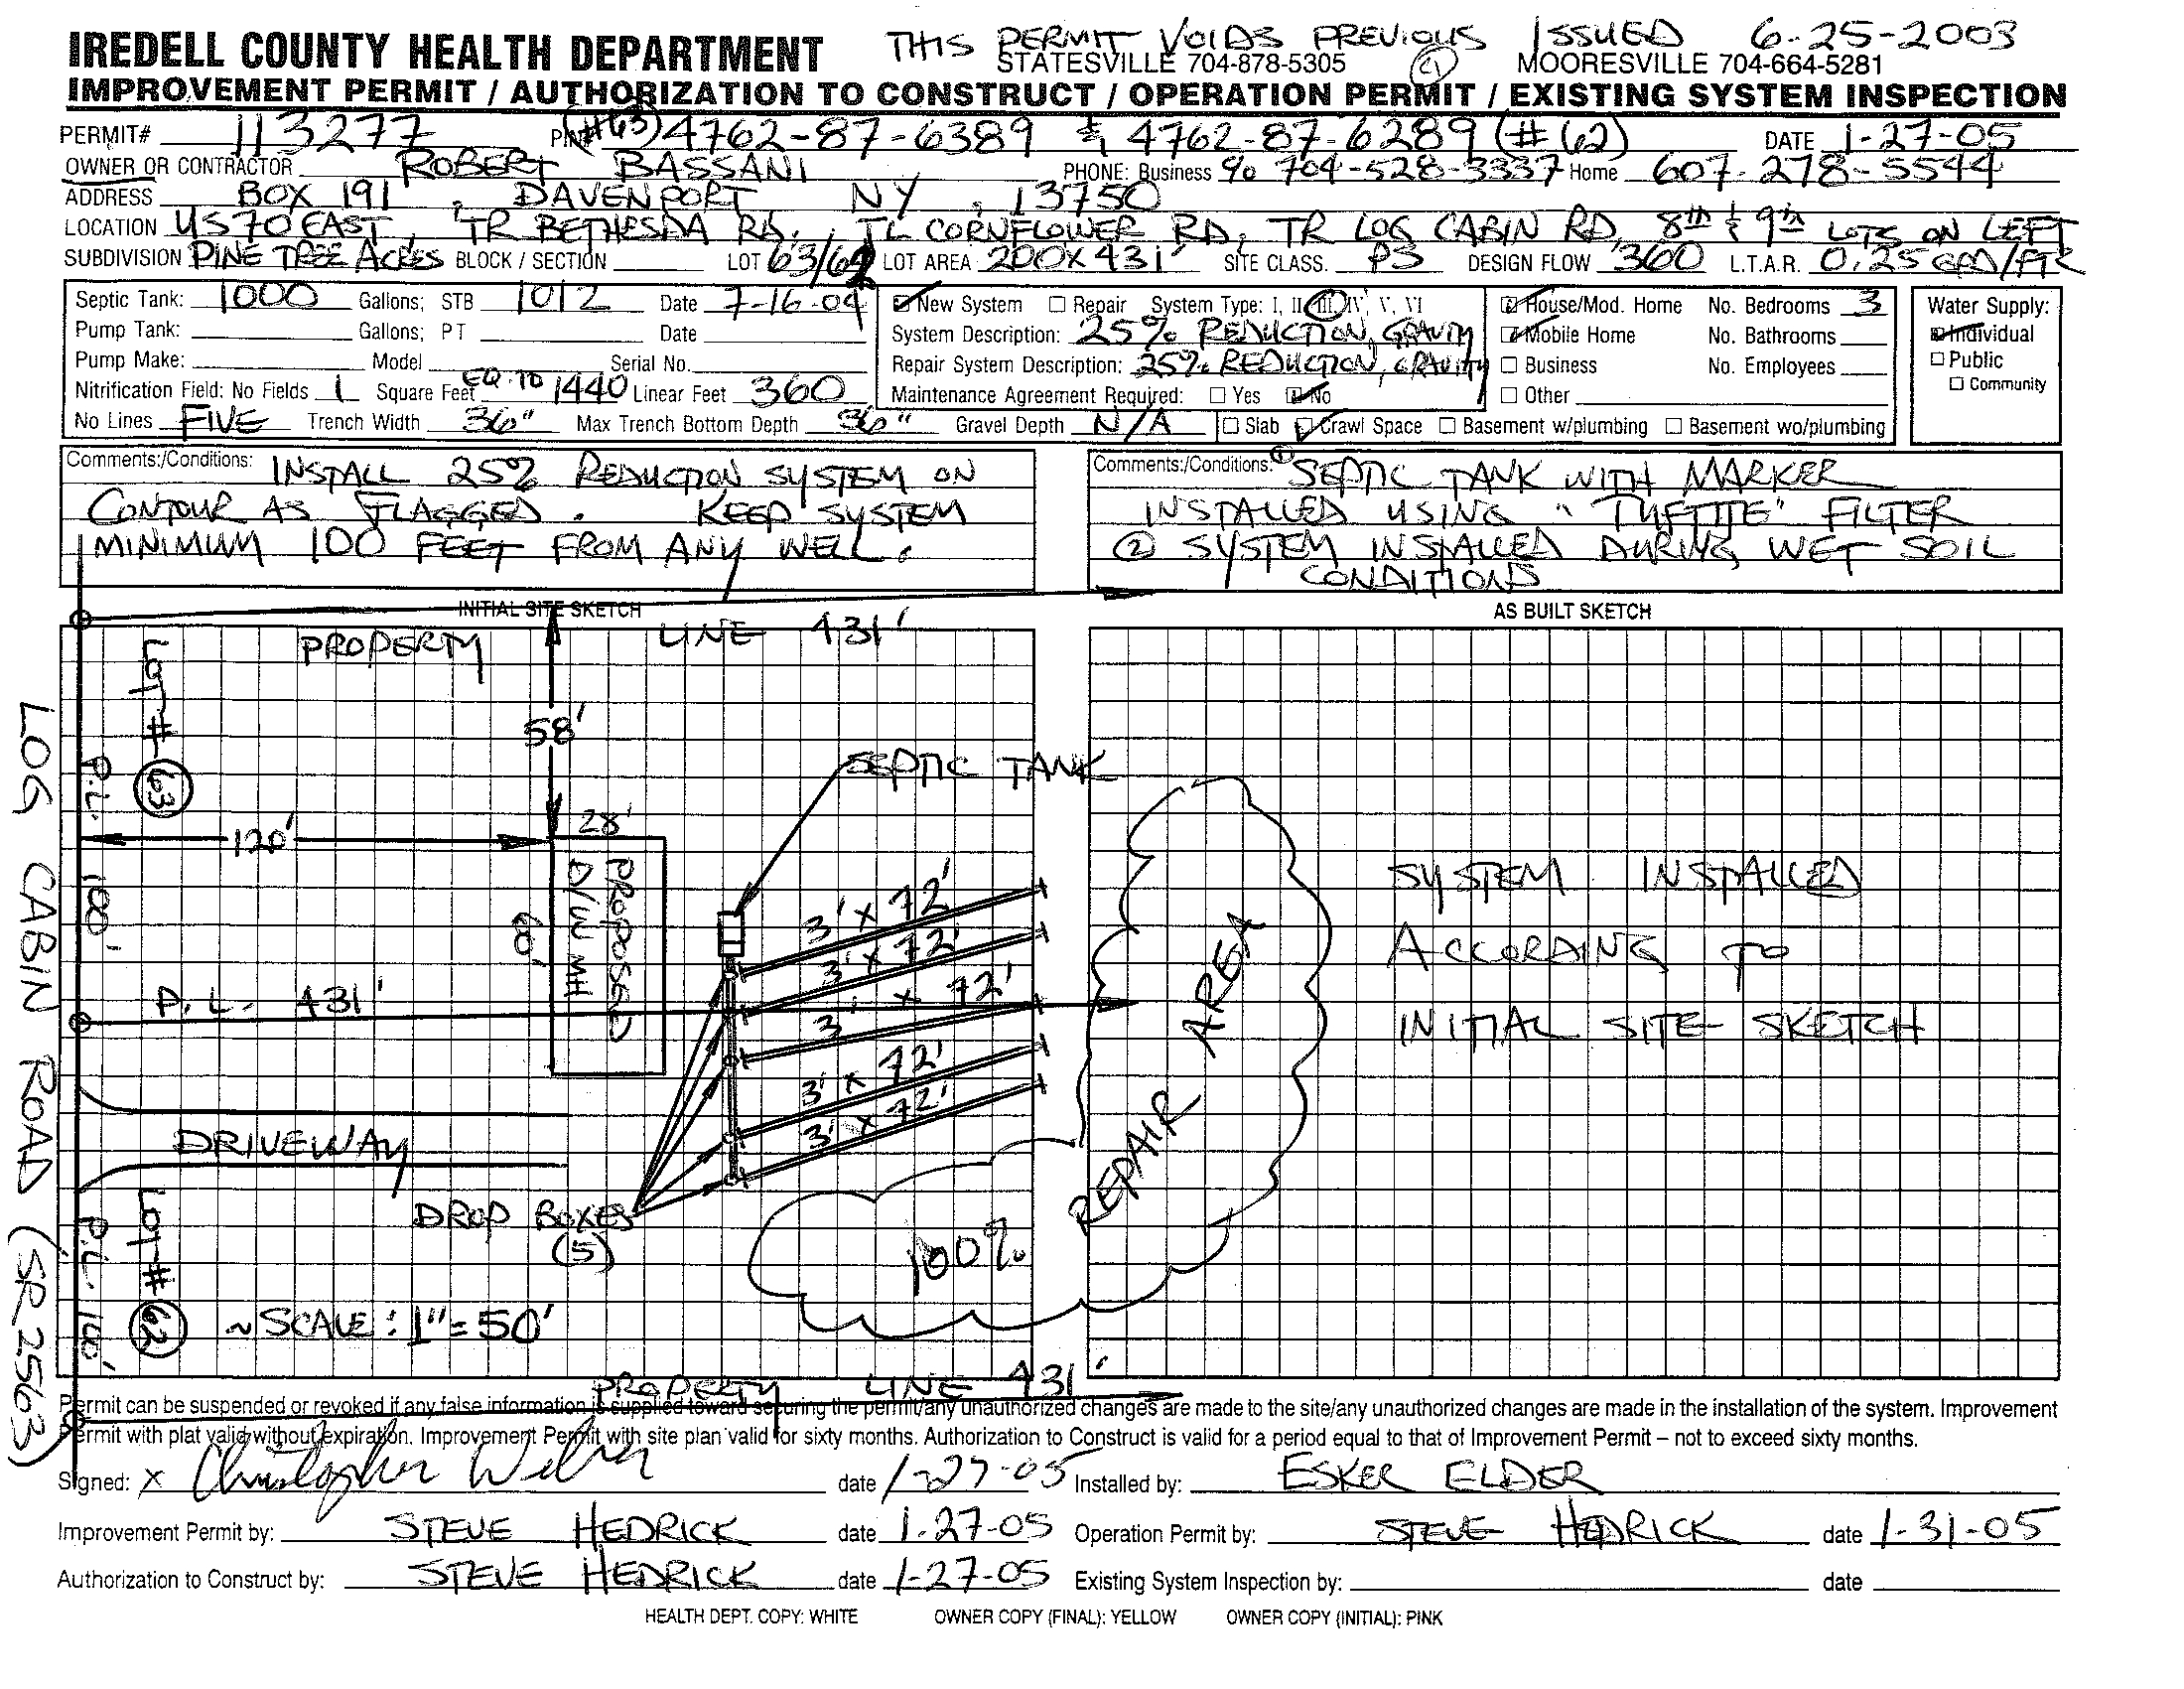 THIS PERMIT VOIDS PREVIOUS ISSUED 6-25-2003
IREDELL COUNTY HEALTH DEPARTMENT STATESVILLE 704-878-5305 MOORESVILLE 704-664-5281
IMPROVEMENT PERMIT / AUTHORIZATION TO CONSTRUCT / OPERATION PERMIT / EXISTING SYSTEM INSPECTION
PERMIT# 113277 PIN# (#63) 4762-87-6389 & 4762-87-6289 (#62) DATE 1-27-05
OWNER OR CONTRACTOR ROBERT BASSANI PHONE: Business % 704-528-3337 Home 607-278-5544
ADDRESS BOX 191, DAVENPORT NY, 13750
LOCATION US 70 EAST, TR BETHESDA RD, TL CORNFLOWER RD, TR LOG CABIN RD, 8th & 9th LOTS ON LEFT
SUBDIVISION PINE TREE ACRES BLOCK / SECTION LOT 63/62 LOT AREA 200X431' SITE CLASS. PS DESIGN FLOW 360 L.T.A.R. 0.25 GPD/FT2
Septic Tank: 1000 Gallons; STB 1012 Date 7-16-04
Pump Tank: Gallons; PT Date
Pump Make: Model Serial No.
Nitrification Field: No Fields 1 Square Feet EQ. TO 1440 Linear Feet 360
No Lines FIVE Trench Width 36" Max Trench Bottom Depth 36" Gravel Depth N/A
New System Repair System Type: I, II, III, IV, V, VI
System Description: 25% REDUCTION, GRAVITY
Repair System Description: 25% REDUCTION, GRAVITY
Maintenance Agreement Required: Yes No
House/Mod. Home No. Bedrooms 3
Mobile Home No. Bathrooms
Business No. Employees
Other
Slab Crawl Space Basement w/plumbing Basement wo/plumbing
Water Supply:
Individual
Public
Community
Comments:/Conditions: INSTALL 25% REDUCTION SYSTEM ON
CONTOUR AS FLAGGED. KEEP SYSTEM
MINIMUM 100 FEET FROM ANY WELL.
Comments:/Conditions: ① SEPTIC TANK WITH MARKER
INSTALLED USING "TUFTITE" FILTER
② SYSTEM INSTALLED DURING WET SOIL
CONDITIONS
INITIAL SITE SKETCH
AS BUILT SKETCH
PROPERTY LINE 431'
LOT # 63
58'
SEPTIC TANK
P.L. 100'
120'
28'
60'
PROPOSED
D/W MH
3' x 72'
3' x 72'
3' x 72'
3' x 72'
3' x 72'
P.L. 431'
DRIVEWAY
DROP BOXES
(5)
LOT # 62
P.L. 100'
~SCALE: 1"=50'
100%
REPAIR AREA
LOG CABIN ROAD (SR 2563)
SYSTEM INSTALLED
ACCORDING TO
INITIAL SITE SKETCH
PROPERTY LINE 431'
Permit can be suspended or revoked if any false information is supplied toward securing the permit/any unauthorized changes are made to the site/any unauthorized changes are made in the installation of the system. Improvement
Permit with plat valid without expiration. Improvement Permit with site plan valid for sixty months. Authorization to Construct is valid for a period equal to that of Improvement Permit – not to exceed sixty months.
Signed: X Christopher date 1-27-05 Installed by: ESKER ELDER
Improvement Permit by: STEVE HEDRICK date 1-27-05 Operation Permit by: STEVE HEDRICK date 1-31-05
Authorization to Construct by: STEVE HEDRICK date 1-27-05 Existing System Inspection by: date
HEALTH DEPT. COPY: WHITE OWNER COPY (FINAL): YELLOW OWNER COPY (INITIAL): PINK